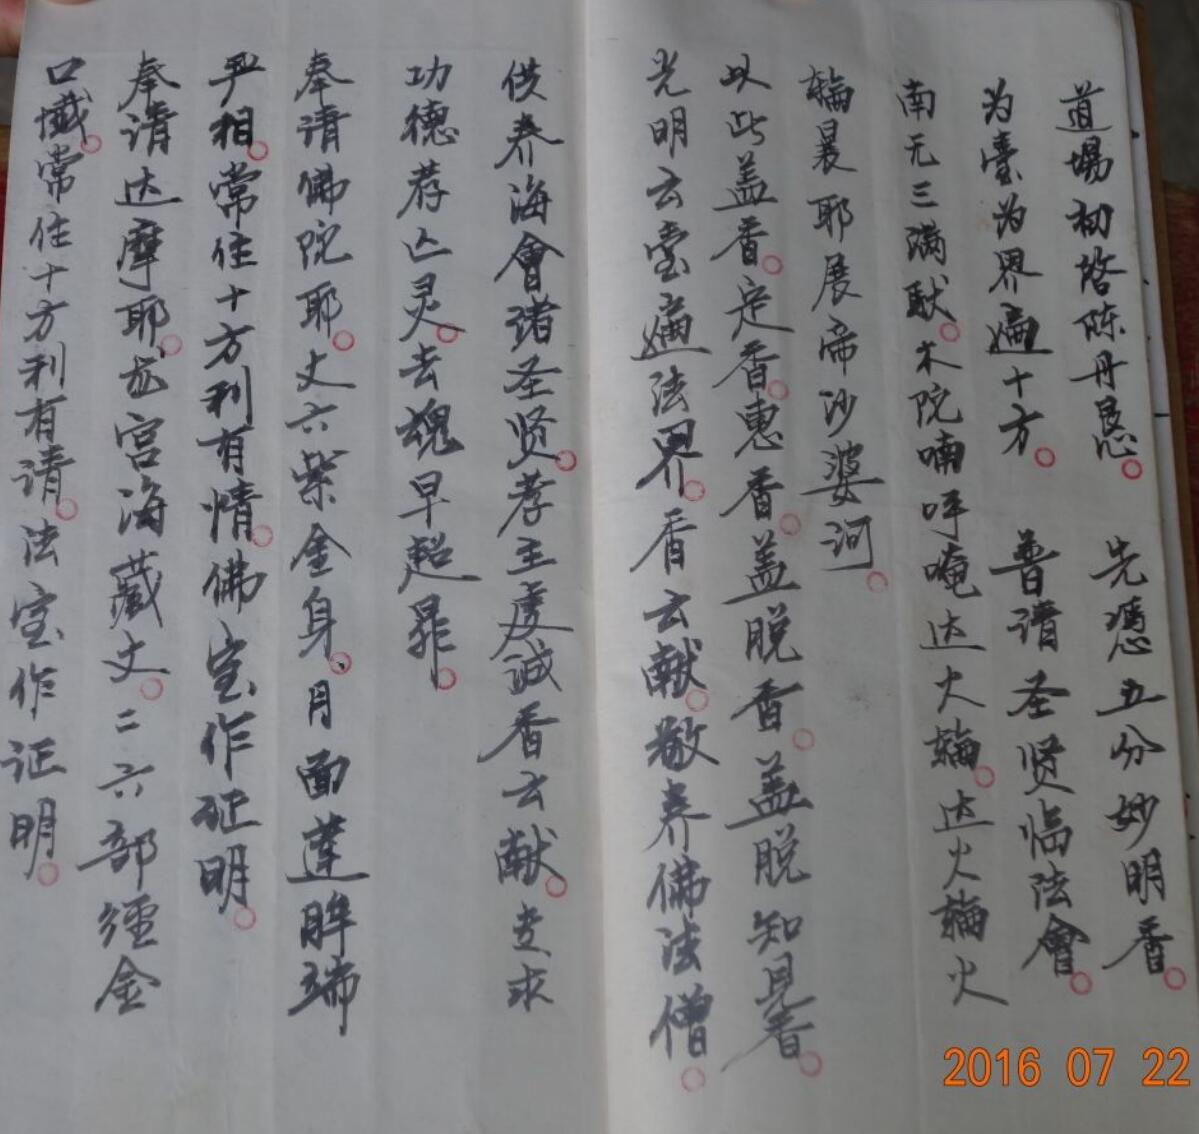 道場初啓陈丹恳。先憑五分妙明香。
为臺为界遍十方。普请圣贤临法會。
南无三满馱。木院喃吽唵达火輪。达火輪火
輪曩耶展帝沙婆诃。
以此盖香。定香。惠香。盖脱香。盖脱知見香。
光明云臺遍法界。香云献。敬养佛法僧。
供养海會诸圣贤。孝主虔诚香云献。专求
功德荐亡灵。去魂早超昇。
奉请佛陀耶。丈六紫金身。月面莲眸端
严相。常住十方利有情。佛宝作证明。
奉请达摩耶。龙宫海藏文。二六部經金
口懺。常住十方利有请。法宝作证明。
2016 07 22